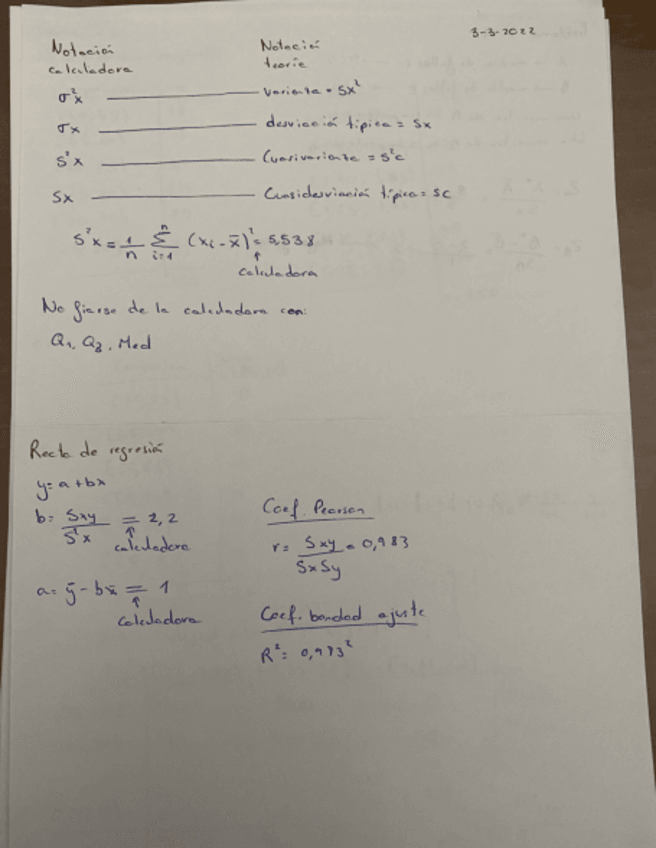 3-3-2022
Notación calculadora
Notación teoría
σ²x ——— varianza = Sx²
σx ——— desviación típica = Sx
S²x ——— Cuasivarianza = S²c
Sx ——— Cuasidesviación típica = Sc
S²x = 1/n Σ i=1 n (xi - x̄)² = 5,538
↑
calculadora
No fiarse de la calculadora con:
Q1, Q3, Med
Recta de regresión
y = a + bx
b = Sxy / S²x = 2,2
↑
calculadora
a = ȳ - bx̄ = 1
↑
calculadora
Coef. Pearson
r = Sxy / SxSy = 0,983
Coef. bondad ajuste
R² = 0,983²